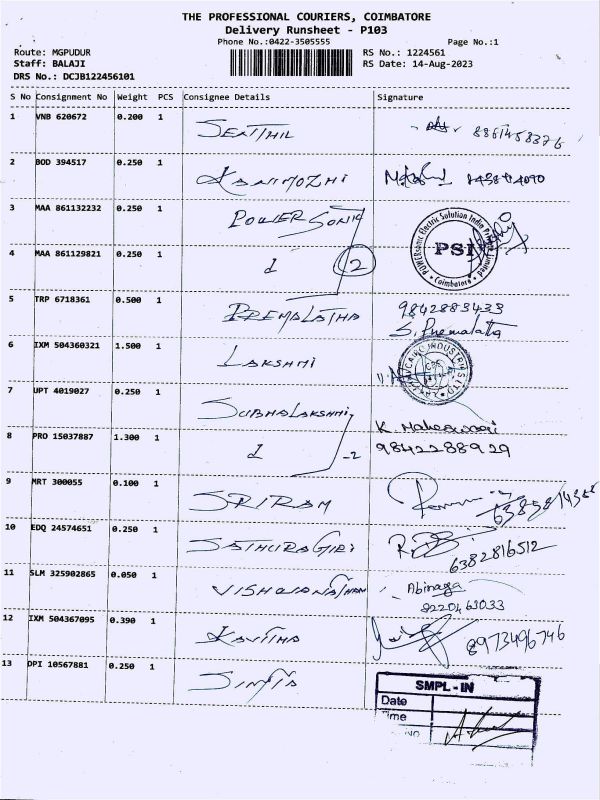 THE PROFESSIONAL COURIERS, COIMBATORE
Delivery Runsheet - P103
Phone No.:0422-3505555 Page No.:1
Route: MGPUDUR RS No.: 1224561
Staff: BALAJI RS Date: 14-Aug-2023
DRS No.: DCJB122456101
S No Consignment No Weight PCS Consignee Details Signature
1 VNB 620672 0.200 1 SENTHIL 8861458376
2 BOD 394517 0.250 1 KANIMOZHI
3 MAA 861132232 0.250 1 POWER SONIC
POWERsonic Electric Solution India Private Limited
PSI
Coimbatore
4 MAA 861129821 0.250 1 2
5 TRP 6718361 0.500 1 PREMALATHA 9842883433
S. Premalatha
6 IXM 504360321 1.500 1 LAKSHMI
7 UPT 4019027 0.250 1 SUBHALAKSHMI K. Maheswari
8 PRO 15037887 1.300 1 -2 9842288929
9 MRT 300055 0.100 1 SRIRAM
10 EDQ 24574651 0.250 1 SATHURAGIRI 6382816512
11 SLM 325902865 0.050 1 VISHWANATHAN Abinaya
8220463033
12 IXM 504367095 0.390 1 KAVITHA 8973496746
13 DPI 10567881 0.250 1
SMPL - IN
Date
Time
NO